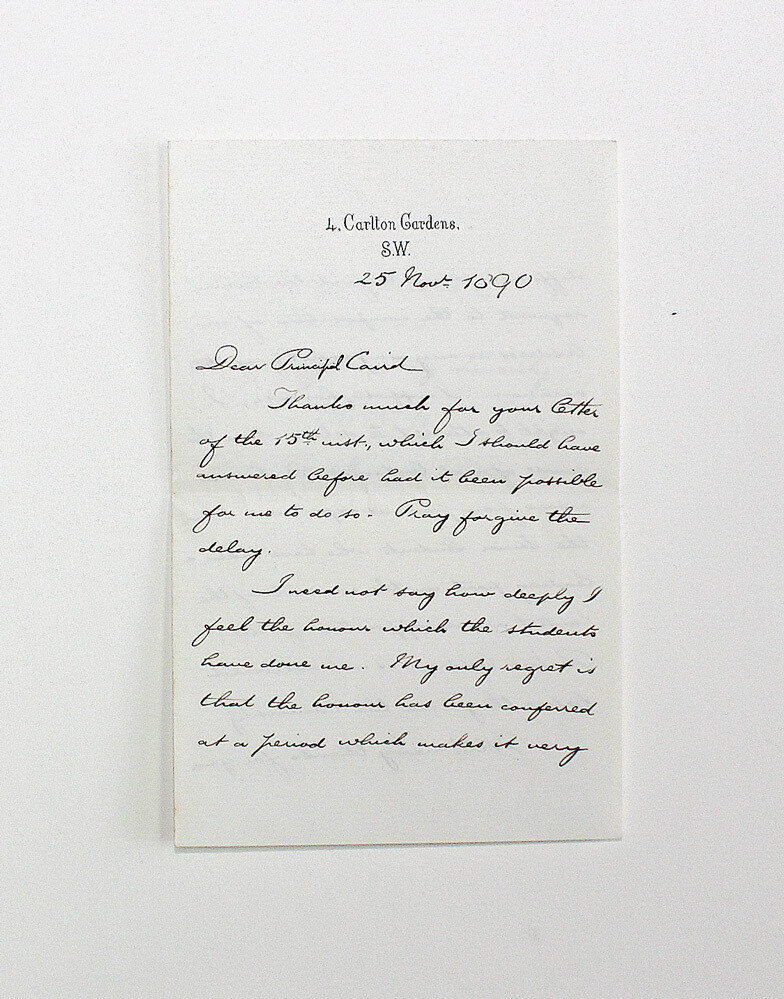 4, Carlton Gardens,
S.W.
25 Novr. 1890
Dear Principal Caird
Thanks much for your letter
of the 15th inst., which I should have
answered before had it been possible
for me to do so - Pray forgive the
delay.
I need not say how deeply I
feel the honour which the students
have done me. My only regret is
that the honour has been conferred
at a period which makes it very